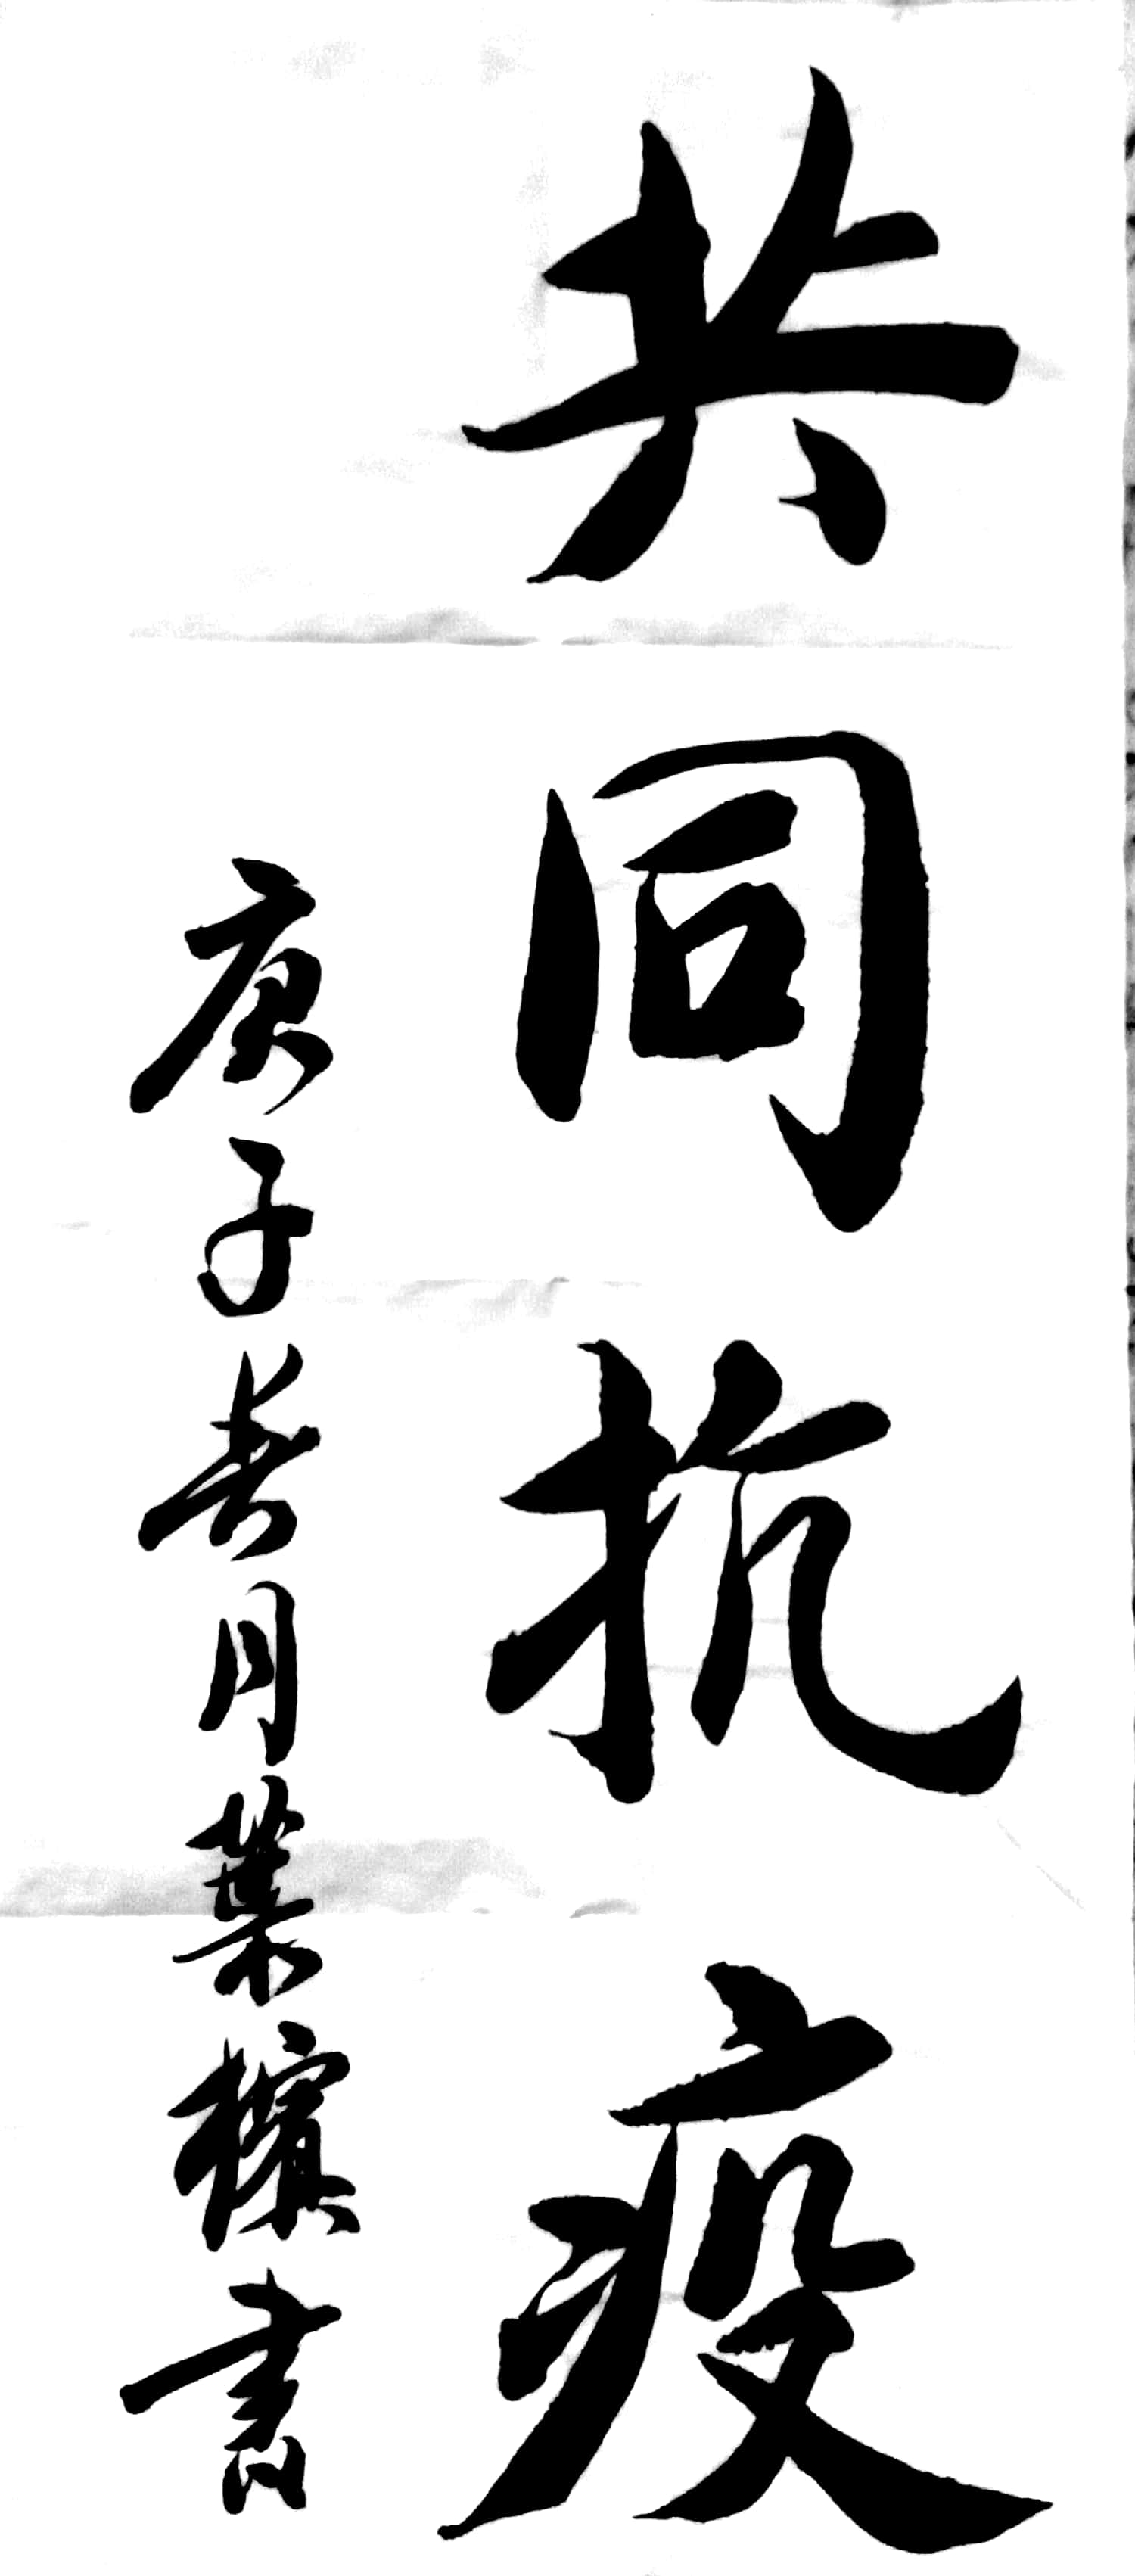 共同抗疫
庚子春月葉檳書